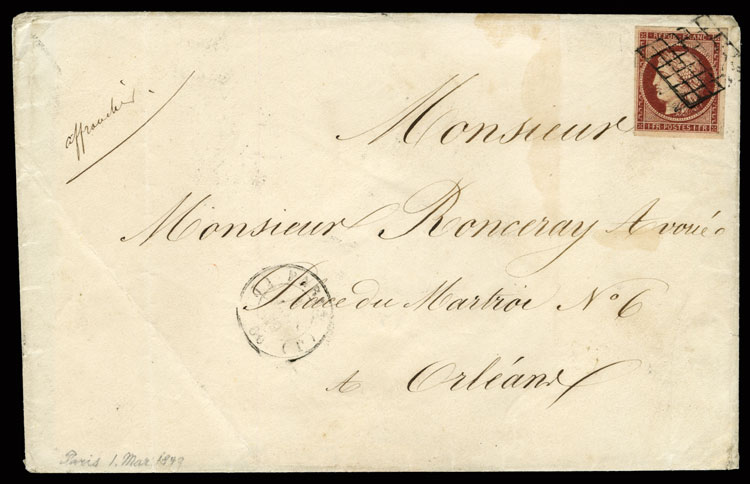 affranchie.
REPUB. FRANC.
1 FR. POSTES 1 FR.
Monsieur
Monsieur Ronceray Avoué
Place du Martroi N° 6
PARIS
(60)
A Orléans
Paris 1. Mar 1849